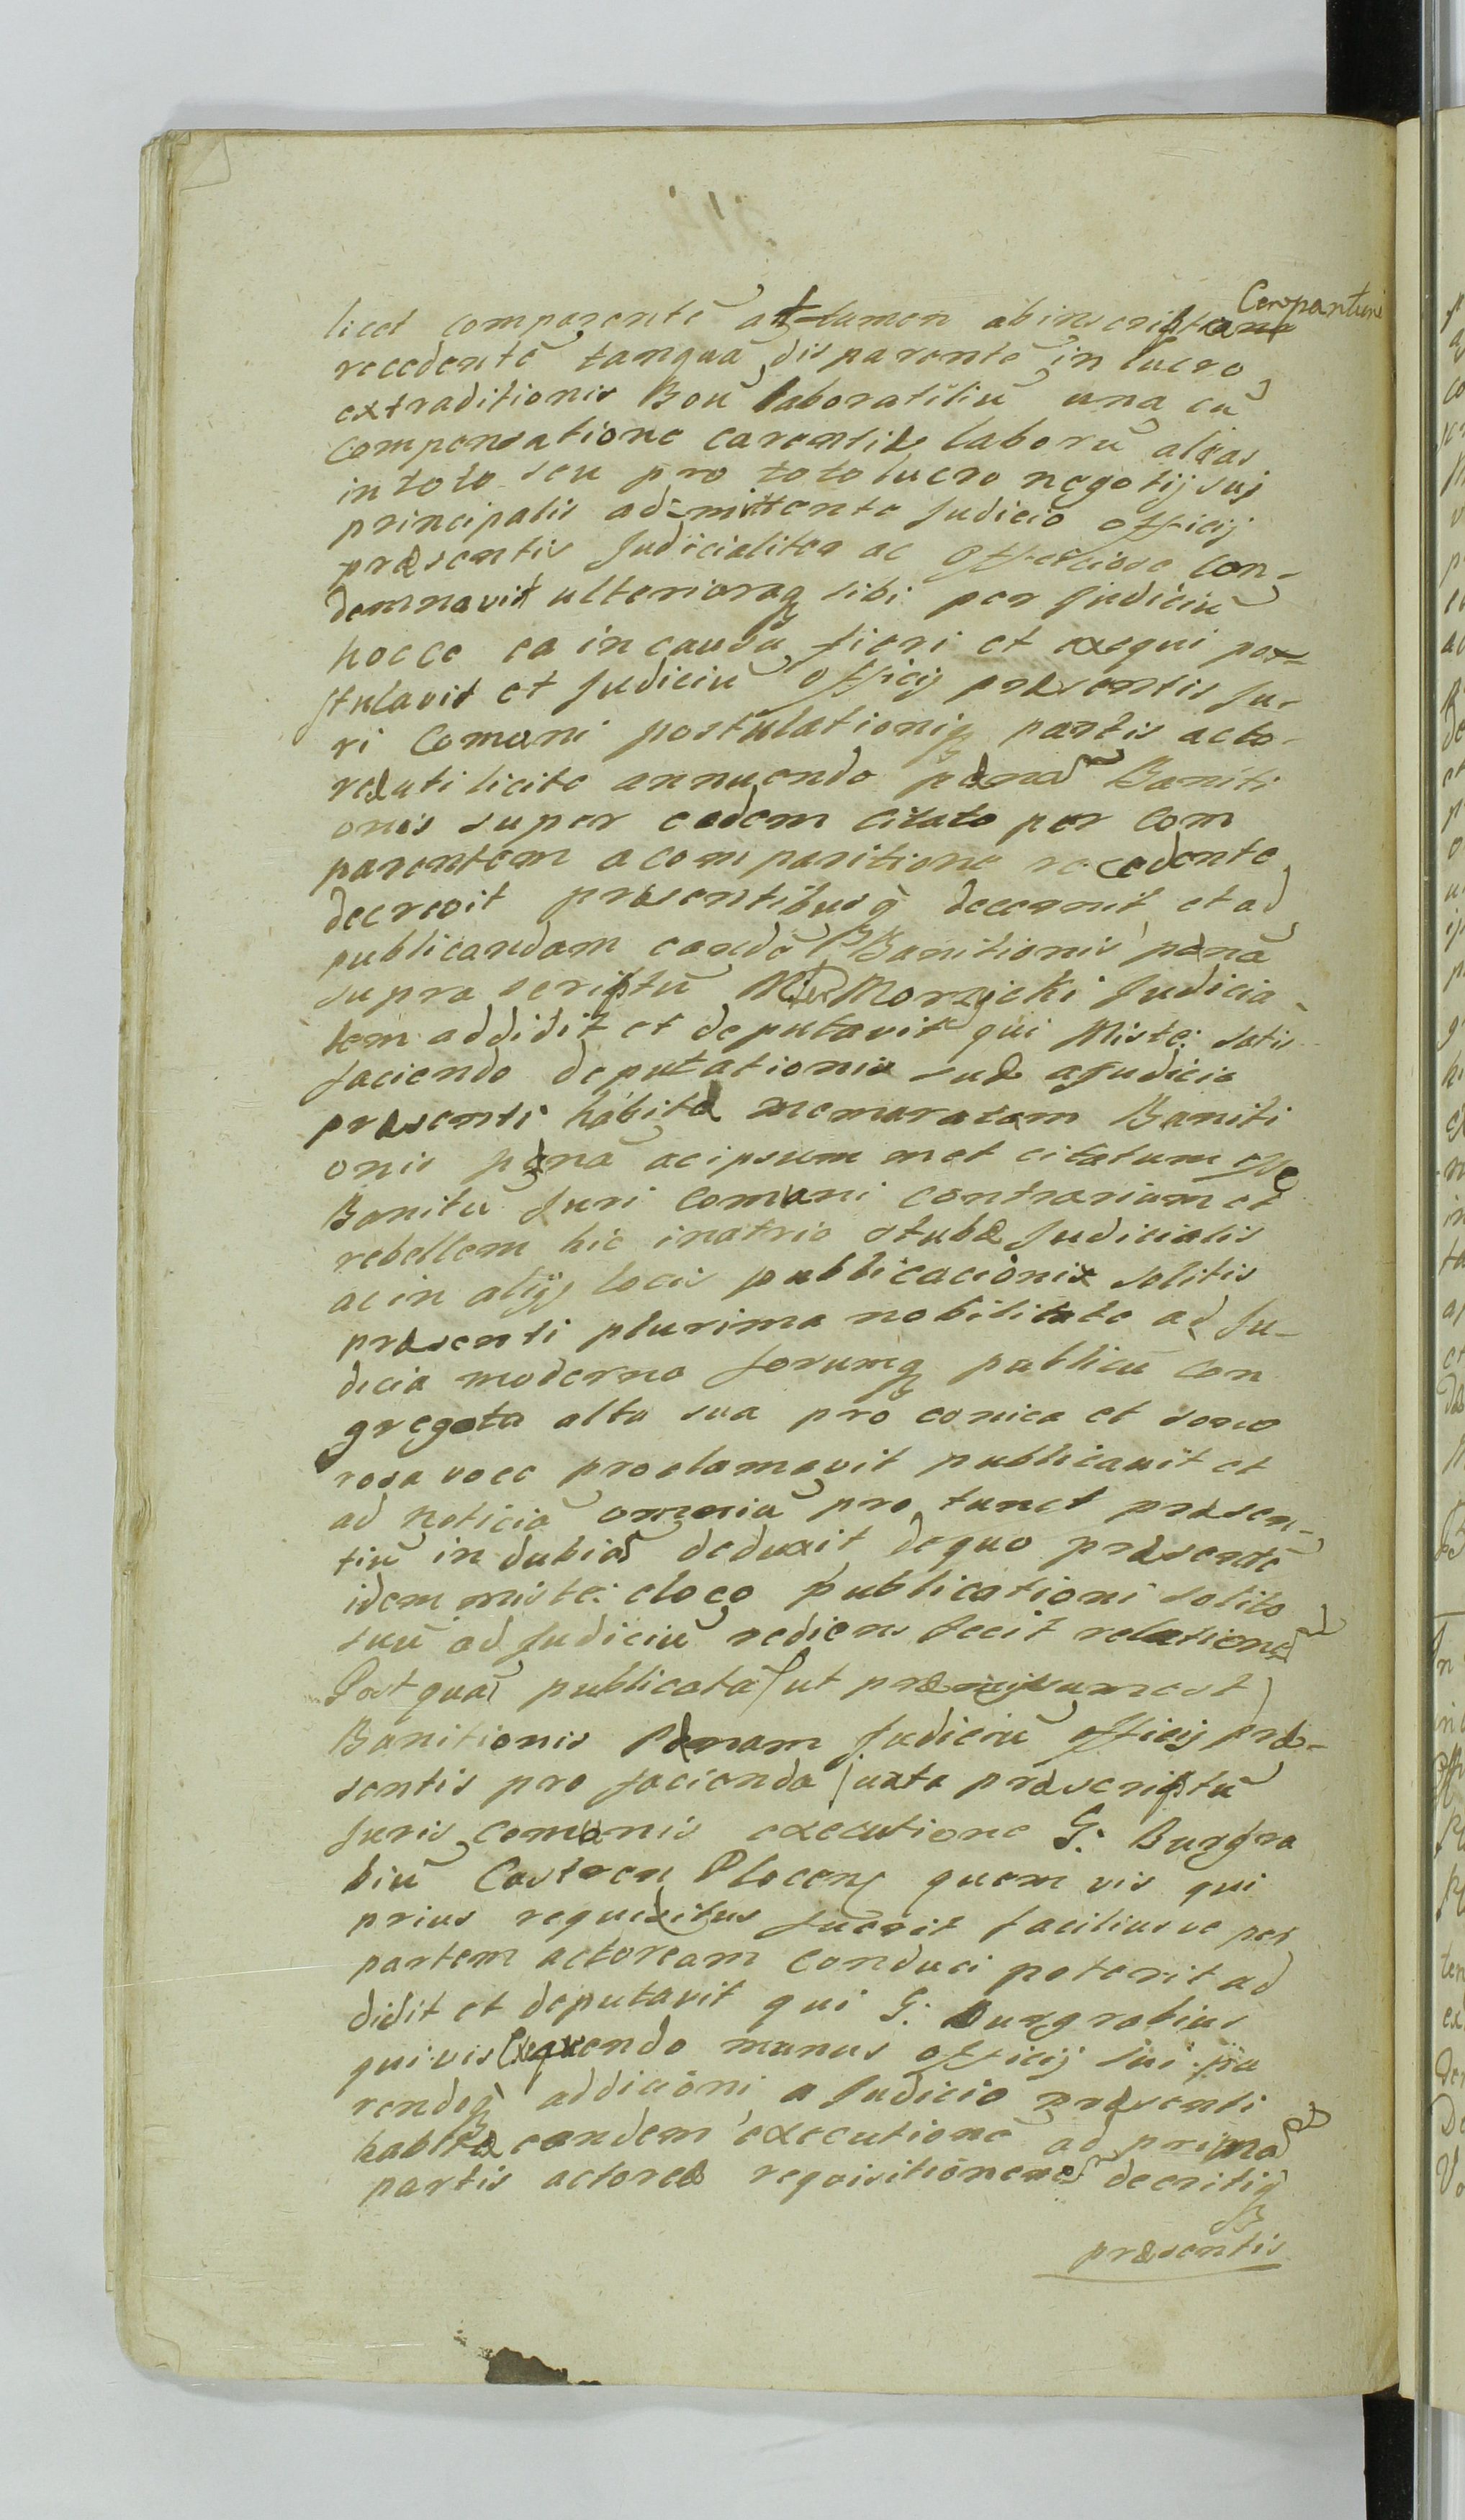 Comparitione
licet comparentē at-tamen ab inscriptione
recedentē tanquā disparentē in lucro
extraditionis Boū laboratiliū una cū
compensatione carentiæ laborū alias
in toto seu pro toto lucro negotij sui
principalis ad-mittente Judicio officij
præsentis Judicialiter ac officiose con-
demnavit ulterioraq sibi per Judiciū
hocce ea in causa fieri et exequi pos-
stulavit et Judiciū officij præsentis Ju-
ri Comuni postulationiq partis acto-
reæ uti licite annuendo pænā Baniti
onis super eodem citato per Com
parentem a comparitione recedente
decrevit præsentibusq decernit et ad
publicandam eandē Banitionis pænā
supra scriptū Mi Morzycki Judicia-
lem addidit et deputavit qui Miste: satis
faciendo deputationis suæ a Judicio
præsenti habitæ memoratam Baniti
onis pænā ac ipsum met citatum esse
Banitū Juri Comuni contrarium et
rebellem hic in atrio stubæ Judicialis
ac in alijs locis publicacionis solitis
præsenti plurima nobilitate ad Ju-
dicia moderna forumq publicū con
gregata alta sua pro conica et sono
rosa voce proclamavit publicavit et
ad noticiā omniū pro tunc præsen-
tiū in dubiā deduxit de quo præsentē
idem miste: eloco publicationi solito
suū ad Judiciū rediens fecit relationē
Post quā publicatā (ut præmissum est)
Banitionis Pænam Judiciū officij præ-
sentis pro facienda juxta præscriptū
Juris comunis executione G. Burgra
biū Castren Plocens quem vis qui
prius requisitus fuerit faciliusve per
partem actoream conduci poterit ad
didit et deputavit qui G. Burgrabius
quivis Exequendo munus officij sui pa
rendoq addicioni a Judicio præsenti
habitæ eandem executionē ad primā
partis actoreæ requisitionem decritiq
præsentis